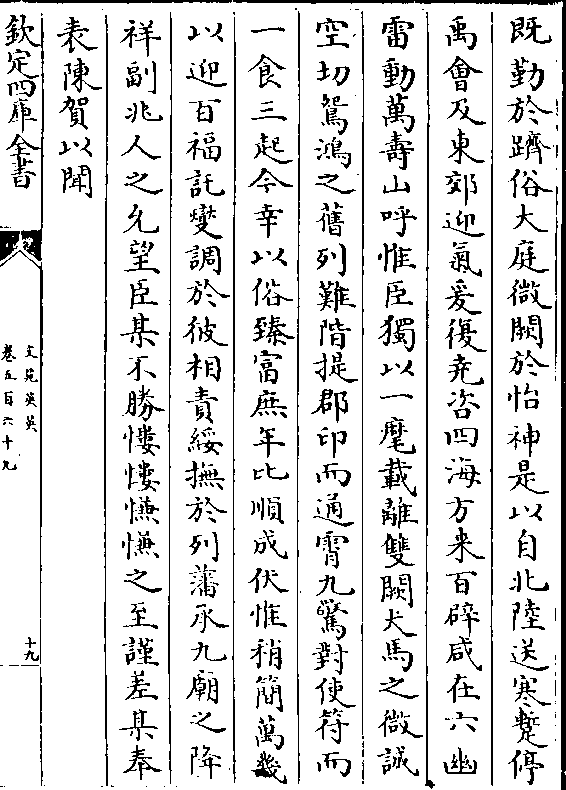 既勤於躋俗大庭微闕於怡神是以自北陸送寒蹔停
禹會及東郊迎氣爰復堯咨四海方来百辟咸在六幽
雷動萬壽山呼惟臣獨以一麾載離雙闕犬馬之微誠
空切鴛鴻之舊列難階提郡印而通宵九驚對使符而
一食三起今幸以俗臻富庶年比順成伏惟稍簡萬幾
以迎百福託燮調於彼相責綏撫於列藩承九廟之降
祥副兆人之允望臣某不勝慺慺慊慊之至謹差某奉
表陳賀以聞
欽定四庫全書
文苑英華
卷五百六十九
十九